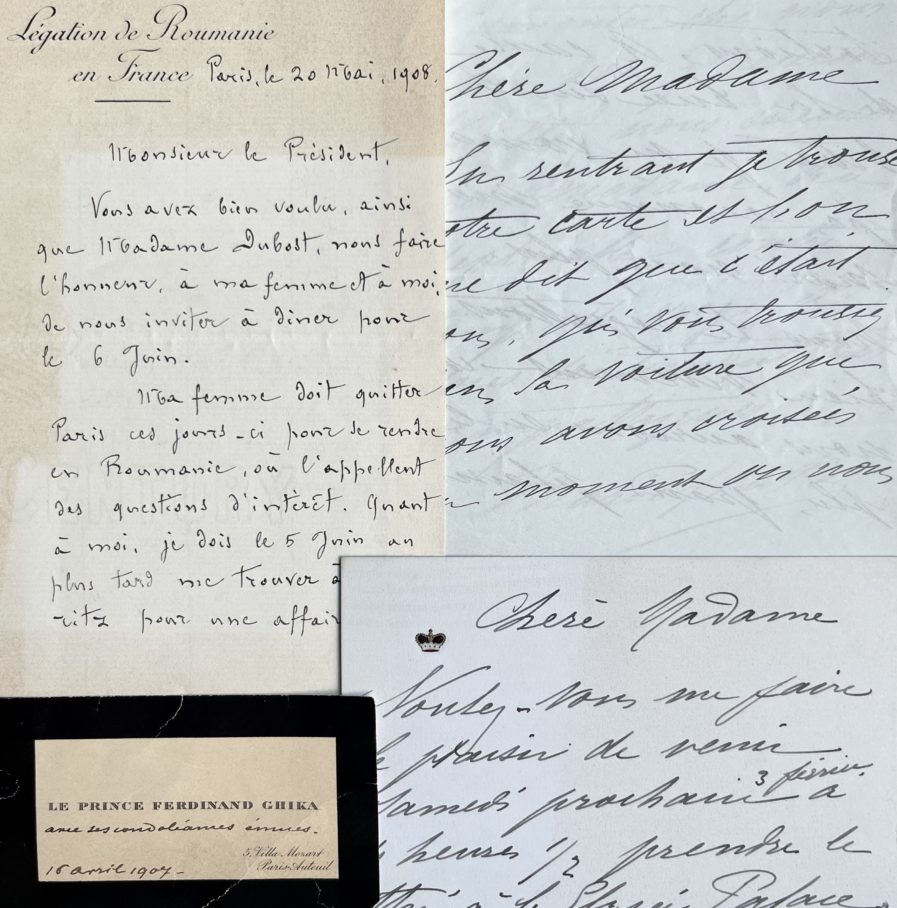 Légation de Roumanie
en France
Paris, le 20 Mai, 1908.
Monsieur le Président,
Vous avez bien voulu, ainsi
que Madame Dubost, nous faire
l'honneur, à ma femme et à moi,
de nous inviter à diner pour
le 6 Juin.
Ma femme doit quitter
Paris ces jours-ci pour se rendre
en Roumanie, où l'appellent
des questions d'intérêt. Quant
à moi, je dois le 5 Juin au
plus tard me trouver à
ritz pour une affair
Chère Madame
En rentrant je trouve
otre carte et l'on
me dit que c'était
ous, qui vous trouviez
la voiture que
ous avons croisées
moment où nous
Chère Madame
Voulez-vous me faire
le plaisir de venir
Samedi prochain 3 février à
heures 1/2 prendre le
thé à l'Elysée Palace
LE PRINCE FERDINAND GHIKA
avec ses condoléances émues.
5, Villa Mozart
Paris-Auteuil
16 avril 1907-